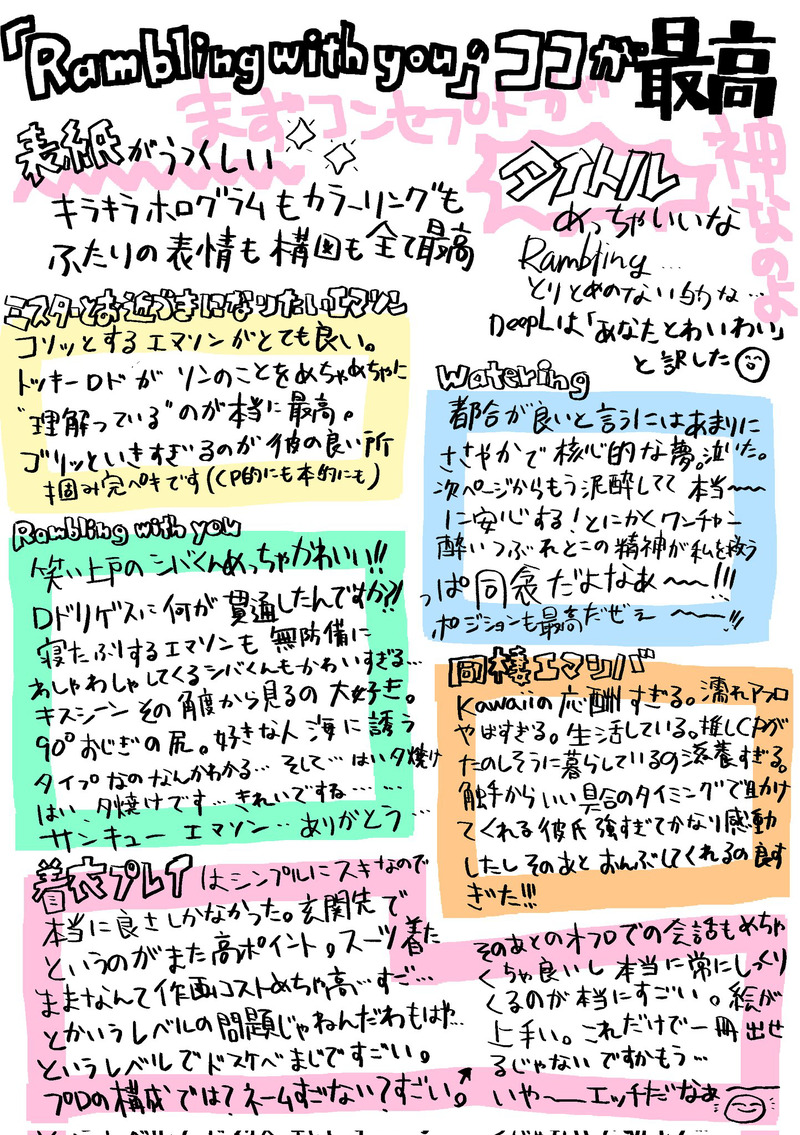 「Rambling with you」のココが最高
まずコンセプトが
神なのよ
表紙がうつくしい
キラキラホログラムもカラーリングも
ふたりの表情も構図も全て最高
タイトル
めっちゃいいな
Rambling…
とりとめのない的な…
DeepLは「あなたとわいわい」
と訳した
ミスターとお近づきになりたいエマソン
コソッとするエマソンがとても良い。
トッキーロドがソンのことをめちゃめちゃに
"理解っている"のが本当に最高。
ゴリッといきすぎるのが彼の良い所
掴み完ペキです(CP的にも本的にも)
Watering
都合が良いと言うにはあまりに
ささやかで核心的な夢。泣いた。
次ページからもう泥酔してて本当〜〜
に安心する!とにかくワンチャン
酔いつぶれとこの精神が私を救う
っぱ同衾だよなぁ〜〜!!!
ポジションも最高だぜぇ〜〜!!!
Rambling with you
笑い上戸のシバくんめっちゃかわいい!!
ロドリゲスに何が貫通したんですか?!
寝たふりするエマソンも無防備に
わしゃわしゃしてくるシバくんもかわいすぎる…
キスシーンその角度から見るの大好き。
90°おじぎの尻。好きな人海に誘う
タイプなのなんかわかる…そして…はい夕焼け
はい、夕焼けです…きれいですね……
サンキューエマソン…ありがとう…
同棲エマシバ
Kawaiiの応酬すぎる。濡れアフロ
やばすぎる。生活している。推しCPが
たのしそうに暮らしているの滋養すぎる。
触手からいい具合のタイミングで助け
てくれる彼氏強すぎてかなり感動
したしそのあとおんぶしてくれるの良す
ぎた!!!
着衣プレイはシンプルにスキなので
本当に良さしかなかった。玄関先で
というのがまた高ポイント。スーツ着た
ままなんて作画コストめちゃ高…すご…
とかいうレベルの問題じゃねんだわもはや…
というレベルでドスケベまじですごい。
プロの構成では?ネームすごない?すごい。
そのあとのオフロでの会話もめちゃ
くちゃ良いし本当に常にしっくり
くるのが本当にすごい。絵が
上手い。これだけで一冊出せ
るじゃないですかもう…
いや〜エッチだなぁ